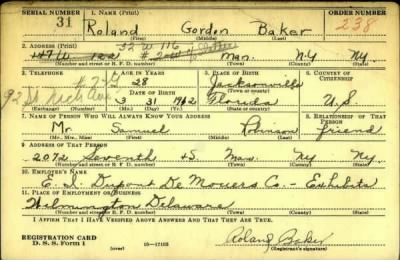 SERIAL NUMBER 1. NAME (Print) ORDER NUMBER
31 Roland Gordon Baker 238
(First) (Middle) (Last)
2. ADDRESS (Print)
32 W 116
147 W 122 Man. N.Y. NY.
(Number and street or R. F. D. number) (Town) (County) (State)
3. TELEPHONE 4. AGE IN YEARS 5. PLACE OF BIRTH 6. COUNTRY OF CITIZENSHIP
28 Jacksonville
DATE OF BIRTH (Town or county)
3 31 1912 Florida U.S
(Exchange) (Number) (Mo.) (Day) (Yr.) (State or country)
7. NAME OF PERSON WHO WILL ALWAYS KNOW YOUR ADDRESS 8. RELATIONSHIP OF THAT PERSON
Mr. Samuel Johnson friend
(Mr., Mrs., Miss) (First) (Middle) (Last)
9. ADDRESS OF THAT PERSON
2072 Seventh Man NY NY
(Number and street or R. F. D. number) (Town) (County) (State)
10. EMPLOYER'S NAME
E. I. Dupont De Mouers Co. - Exhibits
11. PLACE OF EMPLOYMENT OR BUSINESS
Wilmington Delaware
(Number and street or R. F. D. number) (Town) (County) (State)
I AFFIRM THAT I HAVE VERIFIED ABOVE ANSWERS AND THAT THEY ARE TRUE.
REGISTRATION CARD
D. S. S. Form 1 (over) 16-17105
Roland Baker
(Registrant's signature)